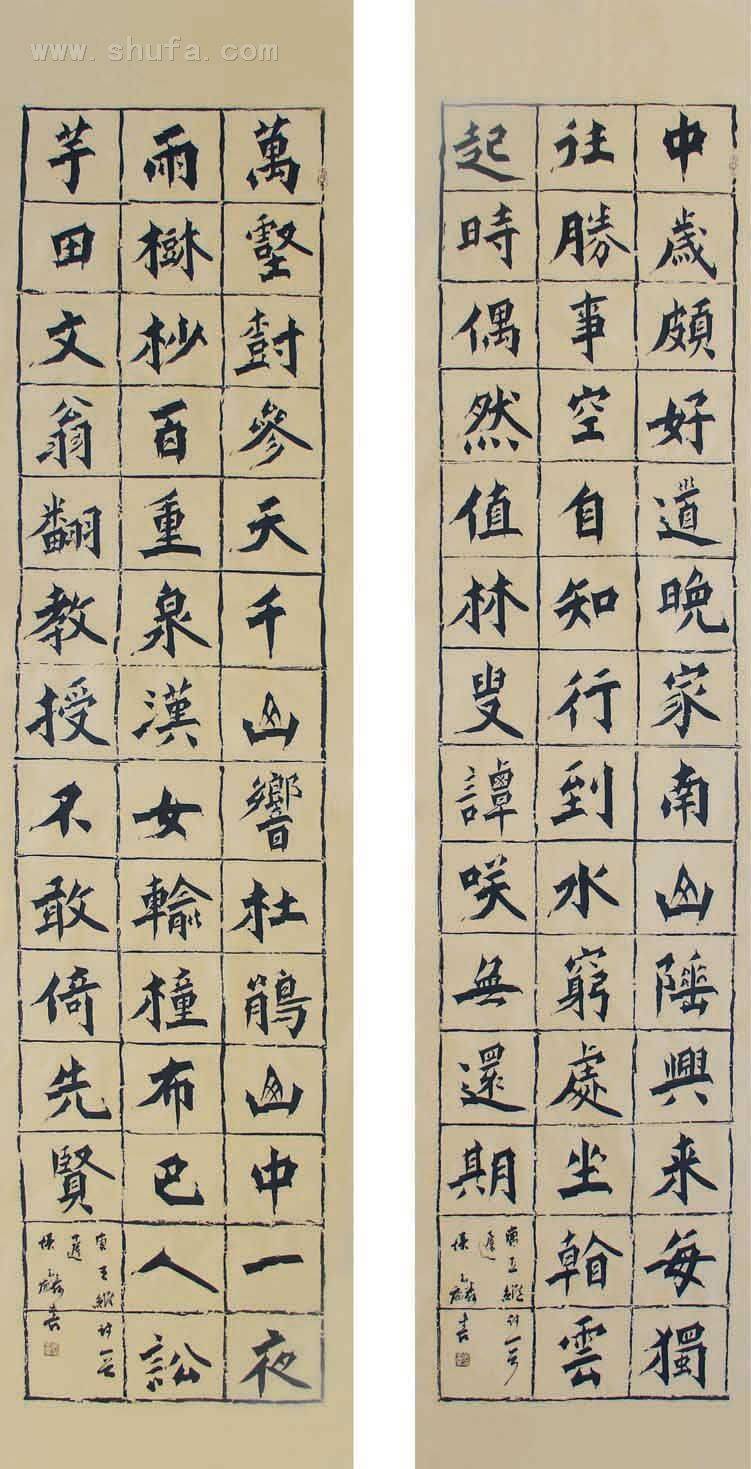 www.shufa.com
中歲頗好道晚家南山陲興来每獨
往勝事空自知行到水窮處坐看雲
起時偶然值林叟譚咲無還期
唐王維詩一首
書
萬壑樹參天千山響杜鵑山中一夜
雨樹杪百重泉漢女輸橦布巴人訟
芋田文翁翻教授不敢倚先賢
唐王維詩一首
書